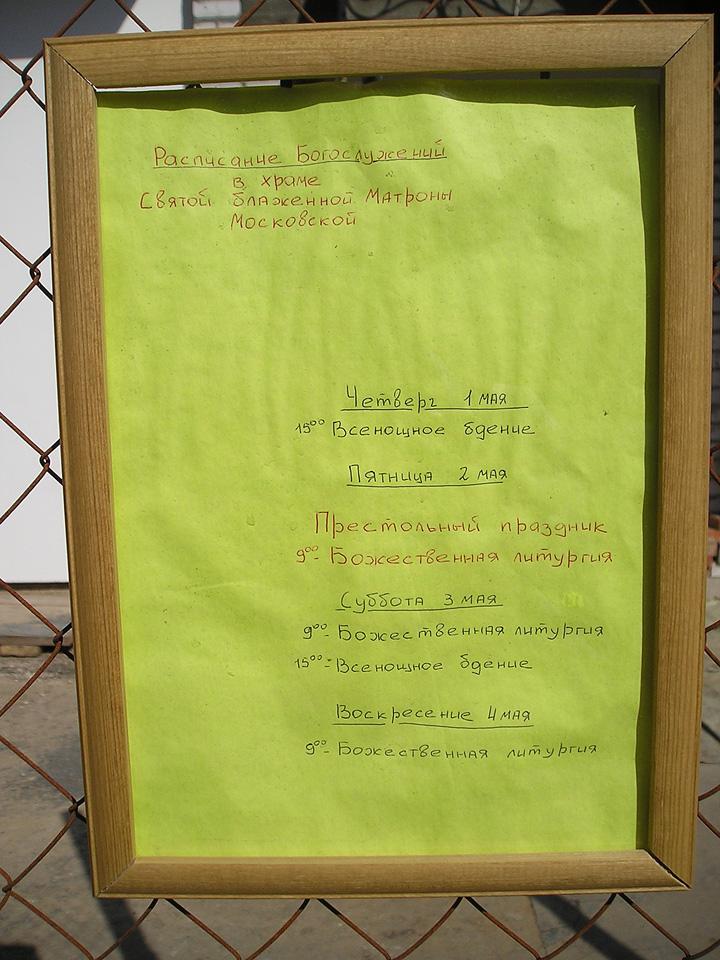 Расписание Богослужений
в храме
Святой блаженной Матроны
Московской
Четверг 1 мая
15⁰⁰ Всенощное бдение
Пятница 2 мая
Престольный праздник
9⁰⁰- Божественная литургия
Суббота 3 мая
9⁰⁰- Божественная литургия
15⁰⁰- Всенощное бдение
Воскресение 4 мая
9⁰⁰- Божественная литургия